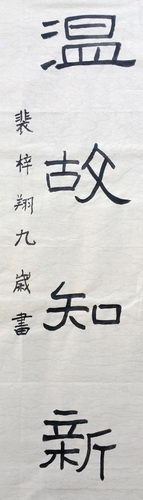 温故知新
裴梓翔九歲書